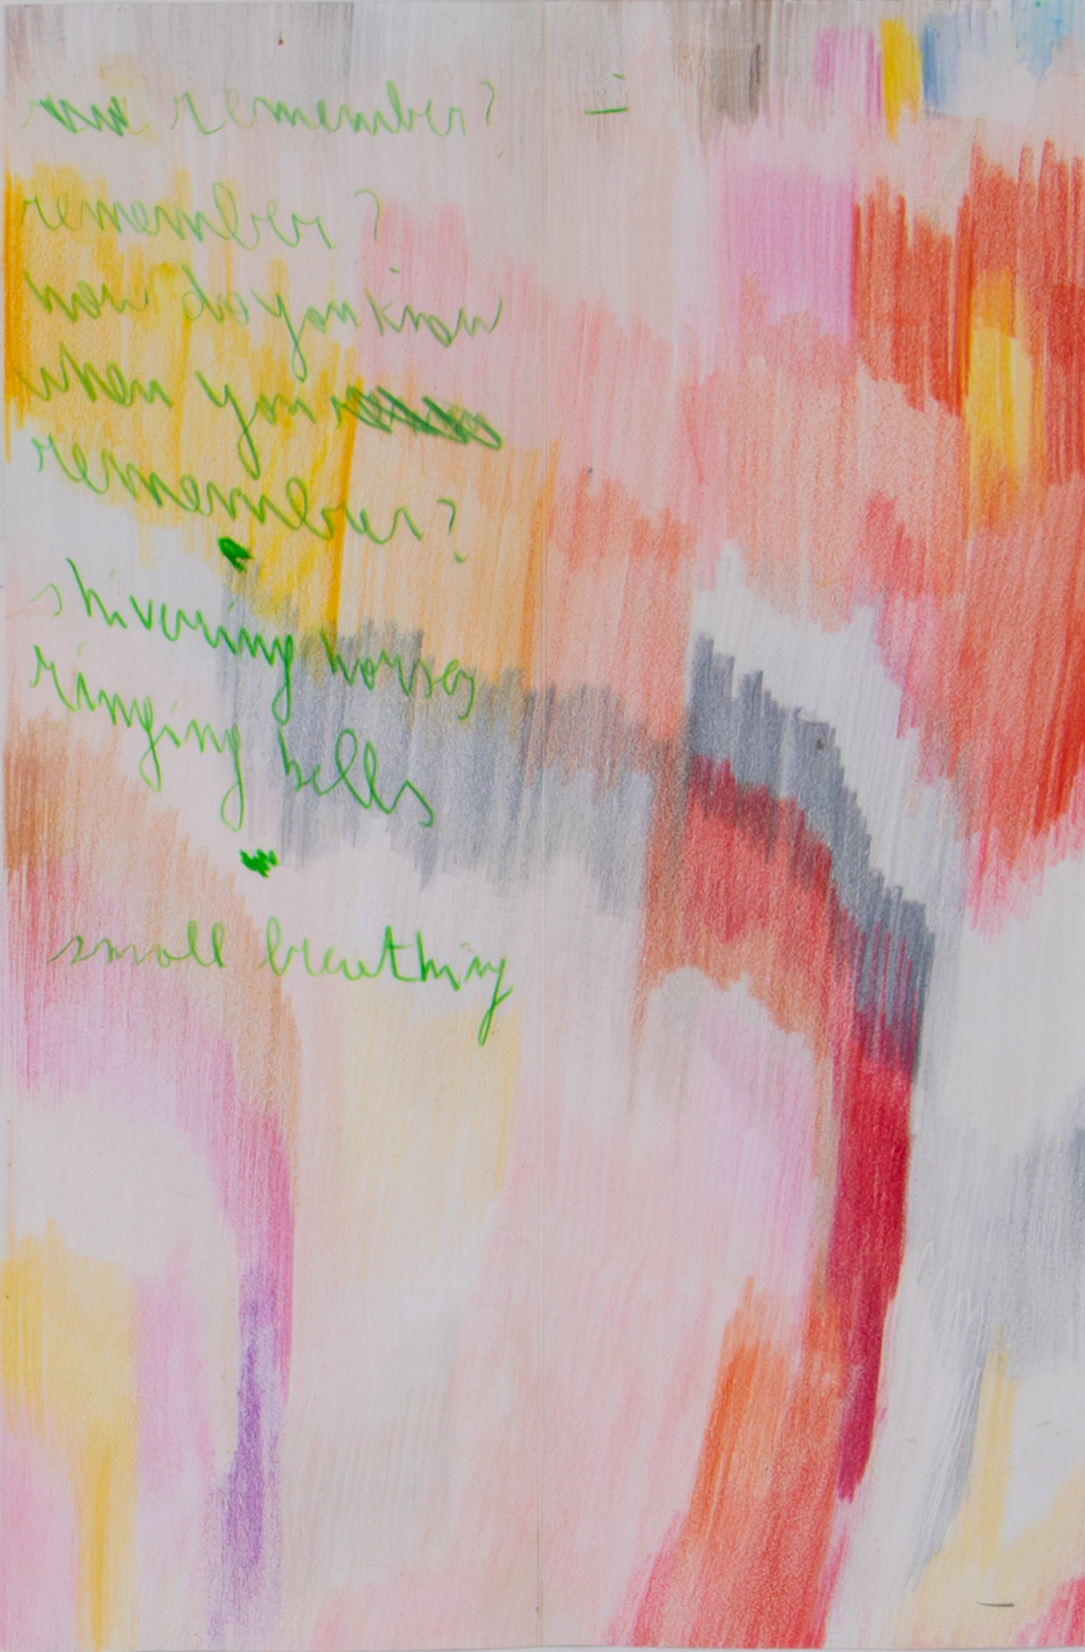 remember?
remember?
how do you know
when you
remember?
shivering horses
ringing bells
small breathing